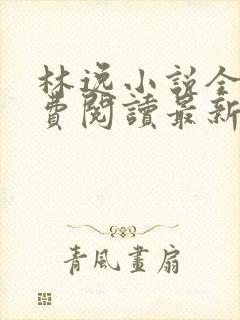 林逸小説全
費閱讀最新
青風畫扇